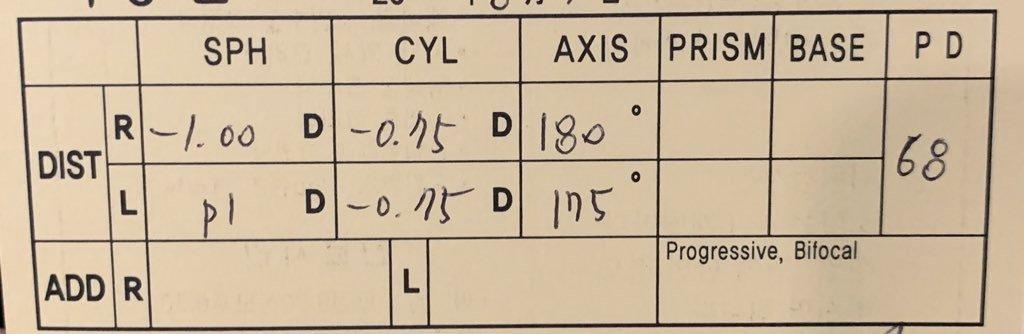 SPH CYL AXIS PRISM BASE P D
DIST R -1.00 D -0.75 D 180 ° 68
L pl D -0.75 D 175 °
ADD R L Progressive, Bifocal